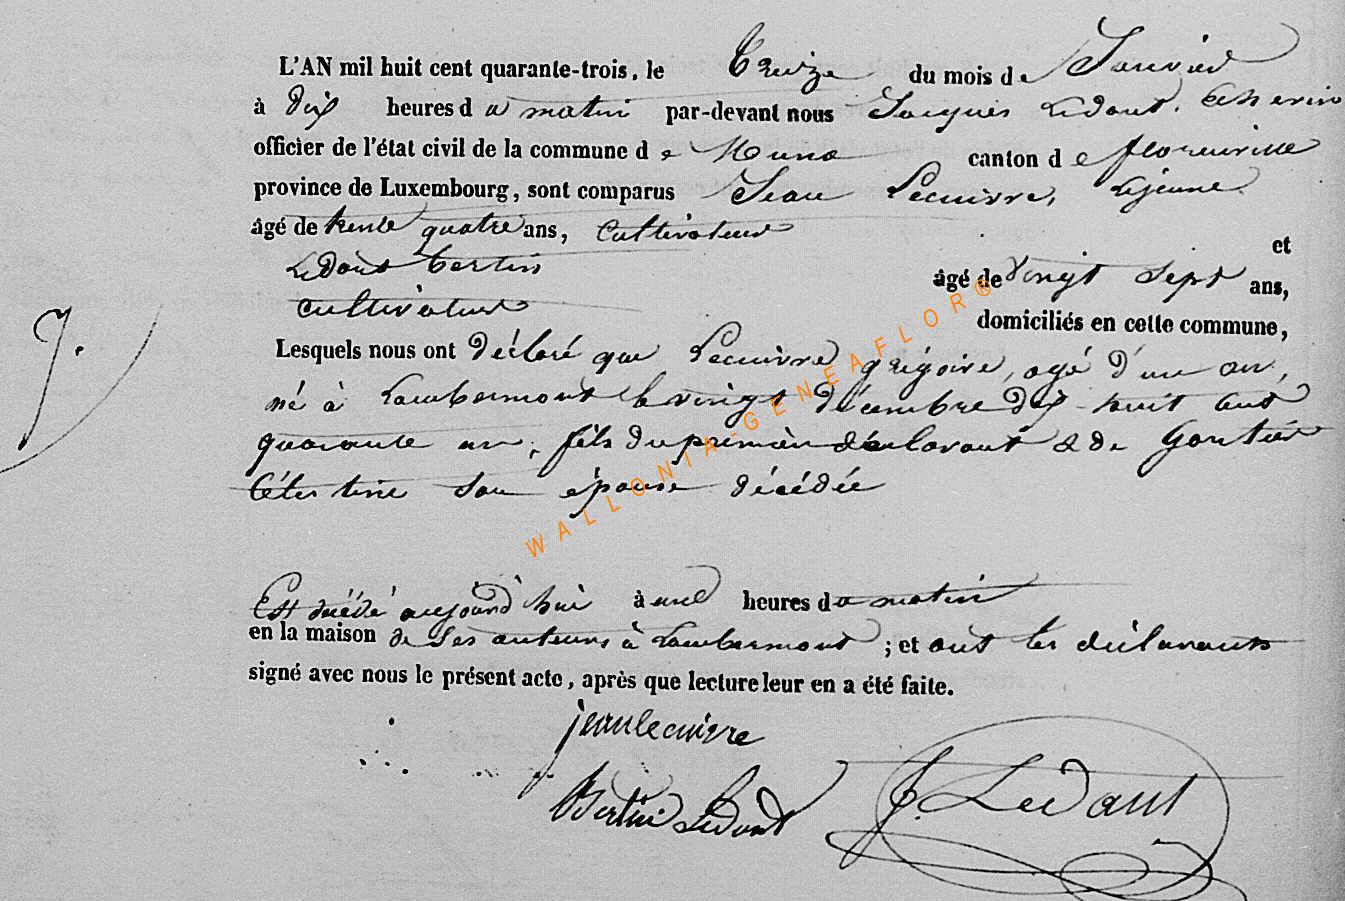 L'AN mil huit cent quarante-trois, le treize du mois de Janvier
à dix heures du matin par-devant nous Jacques Ledant, Echevin
officier de l'état civil de la commune de Muno canton de florenville
province de Luxembourg, sont comparus Jean Lecuivre, Lejeune
âgé de trente quatre ans, Cultivateur
et
Ledant bertin âgé de vingt sept ans,
cultivateur
domiciliés en cette commune,
Lesquels nous ont déclaré que Lecuivre grégoire, agé d'un an,
7.
né à Lambermont le vingt décembre dix-huit cent
quarante un, fils du premier déclarant & de Gontier
Célestine son épouse décédée
Est décédé aujourd'hui à une heures du matin
en la maison de ses auteurs à Lambermont ; et ont les déclarants
signé avec nous le présent acte, après que lecture leur en a été faite.
jean lecuivre
Bertin Ledant
J. Ledant
WALLONIA-GENEAFLOR®